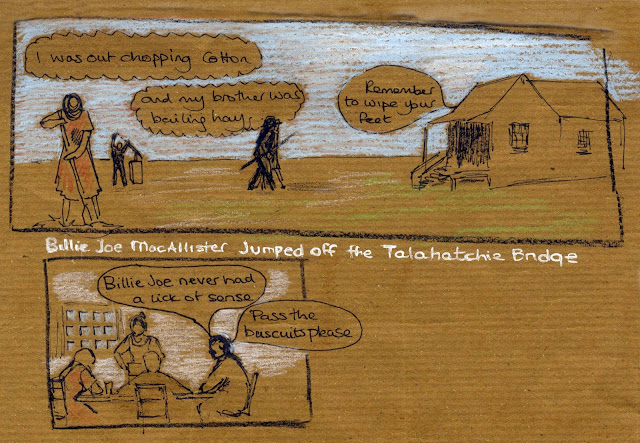 I was out chopping Cotton
and my brother was
bailing hay
Remember
to wipe your
feet
Billie Joe MacAllister Jumped off the Talahatchie Bridge
Billie Joe never had
a lick of sense
Pass the
biscuits please